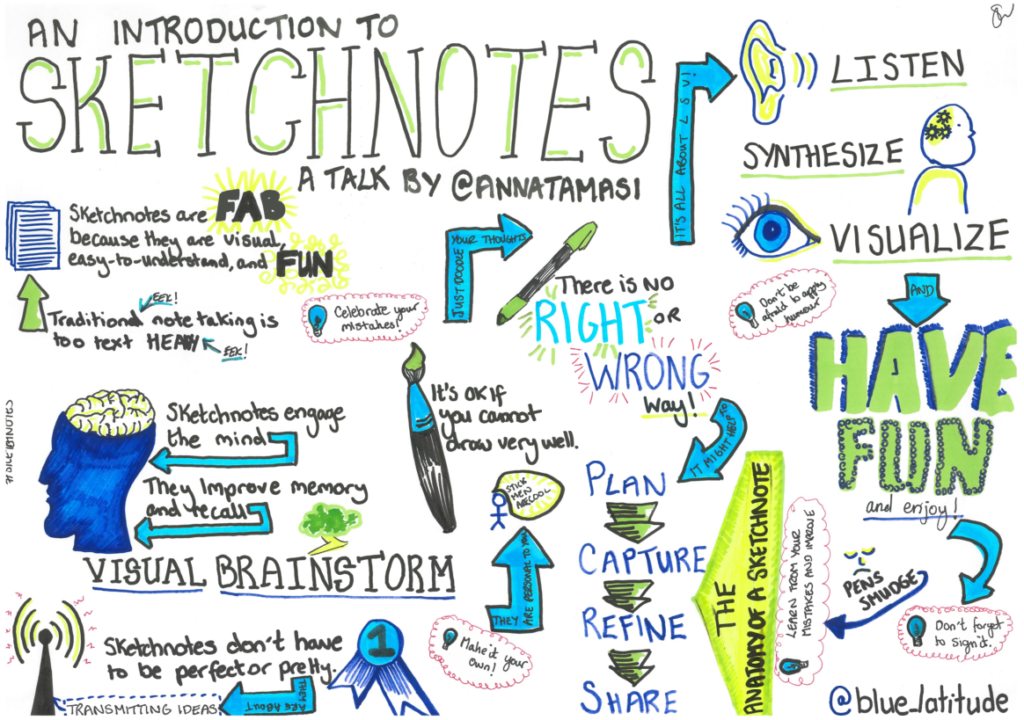 AN INTRODUCTION TO
SKETCHNOTES
A TALK BY @ANNATAMASI
Sketchnotes are FAB
because they are visual,
easy-to-understand, and FUN
EEK!
Traditional note taking is
too text HEAVY
EEK!
Celebrate your
mistakes!
JUST DOODLE
YOUR THOUGHTS
There is NO
RIGHT OR
WRONG
way!
IT'S ALL ABOUT L S V!
LISTEN
SYNTHESIZE
VISUALIZE
Don't be
afraid to apply
humour
AND
HAVE
FUN
and enjoy!
Sketchnotes engage
the mind
They Improve memory
and recall
VISUAL BRAINSTORM
It's ok if
you cannot
draw very well.
STICK
MEN
ARE COOL
THEY ARE PERSONAL TO YOU
IT MIGHT HELP TO
PLAN
CAPTURE
REFINE
SHARE
THE
ANATOMY OF A SKETCHNOTE
LEARN FROM YOUR
MISTAKES AND IMPROVE
PENS
SMUDGE
Don't forget
to sign it.
Sketchnotes don't have
to be perfect or pretty.
1
Make it your
own!
THEY
ARE ABOUT
TRANSMITTING IDEAS
@blue_latitude